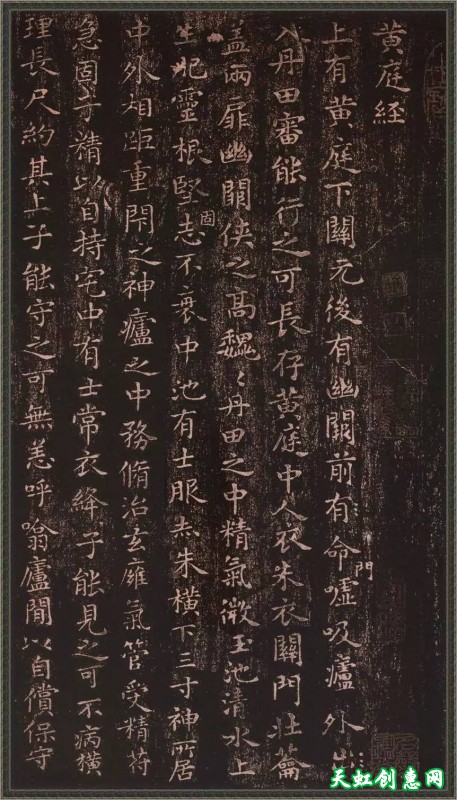 黄庭経
上有黄庭下關元後有幽闕前有命門嘘吸廬外出
入丹田審能行之可長存黄庭中人衣朱衣關門壮籥
盖兩扉幽闕侠之高魏〻丹田之中精氣微玉池清水上
生肥靈根堅固志不衰中池有士服赤朱横下三寸神所居
中外相距重閇之神廬之中務脩治玄廱氣管受精符
急固子精以自持宅中有士常衣絳子能見之可不病横
理長尺約其上子能守之可無恙呼噏廬間以自償保守
天虹创惠网